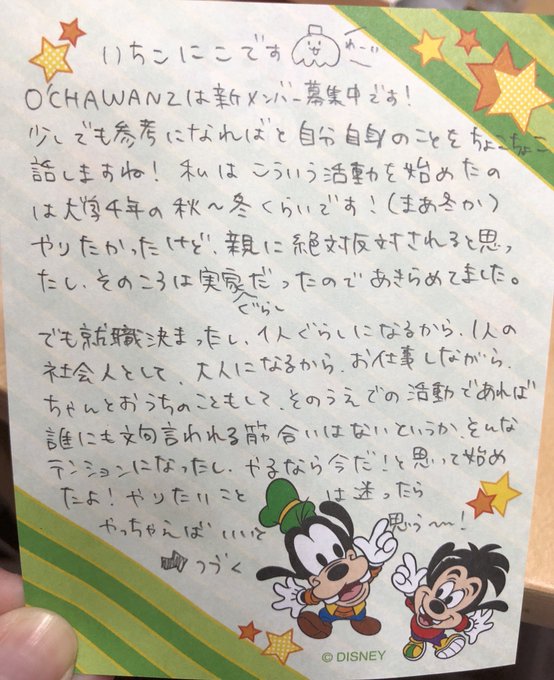 いちこにこです わーい
O'CHAWANZは新メンバー募集中です!
少しでも参考になればと自分自身のことをちょこちょこ
話しますね! 私はこういう活動を始めたの
は大学4年の秋〜冬くらいです!(まあ冬か)
やりたかったけど、親に絶対反対されると思っ
たし、そのころは実家ぐらしだったのであきらめてました。
でも就職決まったし、1人ぐらしになるから、1人の
社会人として、大人になるから、お仕事しながら、
ちゃんとおうちのこともして、そのうえでの活動であれば
誰にも文句言われる筋合いはないというか、そんな
テンションになったし、やるなら今だ!と思って始め
たよ! やりたいことは迷ったら
やっちゃえばいいと思う〜!
つづく
© DISNEY